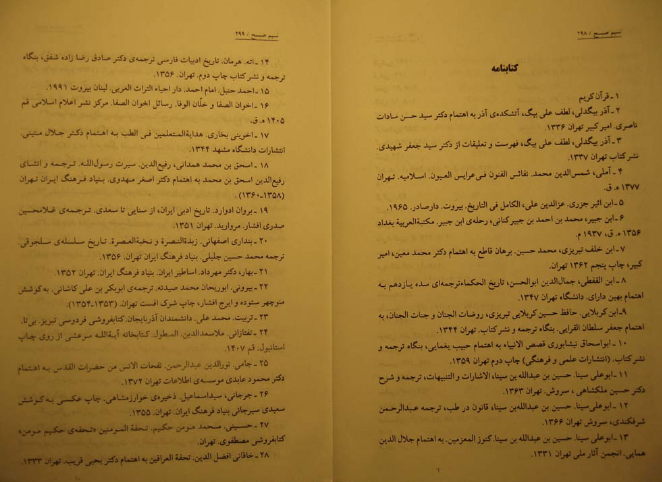 نسیم صبح / ۲۹۸
کتابنامه
۱ – قرآن کریم
۲ – آذر بیگدلی، لطف علی بیگ، آتشکده‌ی آذر به اهتمام دکتر سید حسن سادات
ناصری. امیر کبیر تهران ۱۳۳۶.
۳ – آذر بیگدلی، لطف علی بیگ، فهرست و تعلیقات از دکتر سید جعفر شهیدی.
نشر کتاب تهران ۱۳۳۷.
۴ – آملی، شمس‌الدین محمد. نفائس الفنون فی عرایس العیون. اسلامیه. تهران
۱۳۷۷ ه‍. ق.
۵ – ابن اثیر جزری. عزالدین علی، الکامل فی التاریخ. بیروت. دارصادر. ۱۹۶۵.
۶ – ابن جبیر، محمد بن احمد بن جبیر کنانی، رحله‌ی ابن جبیر. مکتبةالعربیة بغداد
۱۳۵۶ ه‍. ق، ۱۹۳۷ م.
۷ – ابن خلف تبریزی، محمد حسین. برهان قاطع به اهتمام دکتر محمد معین، امیر
کبیر، چاپ پنجم ۱۳۶۲ تهران.
۸ – ابن القفطی، جمال‌الدین ابوالحسن، تاریخ الحکماء ترجمه‌ای سده یازدهم به
اهتمام بهین دارای. دانشگاه تهران ۱۳۴۷.
۹ – ابن کربلایی. حافظ حسین کربلایی تبریزی، روضات الجنان و جنات الجنان، به
اهتمام جعفر سلطان القرایی. بنگاه ترجمه و نشر کتاب. تهران ۱۳۴۴.
۱۰ – ابواسحاق نیشابوری قصص الانبیاء به اهتمام حبیب یغمایی، بنگاه ترجمه و
نشر کتاب. (انتشارات علمی و فرهنگی) چاپ دوم تهران ۱۳۵۹.
۱۱ – ابوعلی سینا. حسین بن عبدالله بن سینا، الاشارات و التنبیهات، ترجمه و شرح
دکتر حسین ملکشاهی، سروش. تهران ۱۳۶۳.
۱۲ – ابوعلی سینا. حسین بن عبدالله‌بن سینا، قانون در طب، ترجمه عبدالرحمن
شرفکندی، سروش تهران ۱۳۶۶.
۱۳ – ابوعلی سینا. حسین بن عبدالله بن سینا. کنوز المعزمین. به اهتمام جلال الدین
همایی. انجمن آثار ملی تهران ۱۳۳۱.
نسیم صبح / ۲۹۹
۱۴ – اته. هرمان. تاریخ ادبیات فارسی ترجمه‌ی دکتر صادق رضا زاده شفق، بنگاه
ترجمه و نشر کتاب چاپ دوم. تهران. ۱۳۵۶.
۱۵ – احمد حنبل. امام احمد. دار احیاء التراث العربی. لبنان بیروت ۱۹۹۱.
۱۶ – اخوان الصفا و خلّان الوفا. رسائل اخوان الصفا. مرکز نشر اعلام اسلامی قم
۱۴۰۵ ه‍. ق.
۱۷ – اخوینی بخاری. هدایةالمتعلمین فی الطب به اهتمام دکتر جلال متینی.
انتشارات دانشگاه مشهد ۱۳۴۴.
۱۸ – اسحق بن محمد همدانی، رفیع‌الدین. سیرت رسول‌الله. ترجمه و انشای
رفیع‌الدین اسحق بن محمد به اهتمام دکتر اصغر مهدوی. بنیاد فرهنگ ایران تهران
(۱۳۶۰–۱۳۵۸).
۱۹ – بروان ادوارد. تاریخ ادبی ایران، از سنایی تا سعدی. ترجمه‌ی غلامحسین
صدری افشار. مروارید. تهران ۱۳۵۱.
۲۰ – بنداری اصفهانی. زبدةالنصرة و نخبةالعصرة. تاریخ سلسله‌ی سلجوقی
ترجمه محمد حسین جلیلی. بنیاد فرهنگ ایران تهران. ۱۳۵۶.
۲۱ – بهار، دکتر مهرداد. اساطیر ایران. بنیاد فرهنگ ایران. تهران ۱۳۵۲.
۲۲ – بیرونی. ابوریحان محمد صیدنه. ترجمه‌ی ابوبکر بن علی کاشانی. به‌کوشش
منوچهر ستوده و ایرج افشار، چاپ شرک افست تهران. (۱۳۵۳–۱۳۵۴).
۲۳ – تربیت. محمد علی. دانشمندان آذربایجان. کتابفروشی فردوسی تبریز. بی‌تا.
۲۴ – تفتازانی. ملاسعدالدین. المطول. کتابخانه آیةالله مرعشی از روی چاپ
استانبول. قم ۱۴۰۷.
۲۵ – جامی. نورالدین عبدالرحمن. نفحات الانس من حضرات القدس به اهتمام
دکتر محمود عابدی موسسه‌ی اطلاعات تهران ۱۳۷۴.
۲۶ – جرجانی، سیداسماعیل. ذخیره‌ی خوارزمشاهی. چاپ عکسی به کوشش
سعیدی سیرجانی بنیاد فرهنگ ایران. تهران. ۱۳۵۵.
۲۷ – حسینی. محمد مومن حکیم. تحفة المومنین «تحفه‌ی حکیم مومن»
کتابفروشی مصطفوی. تهران.
۲۸ – خاقانی افضل الدین. تحفة العراقین به اهتمام دکتر یحیی قریب. تهران ۱۳۳۳.